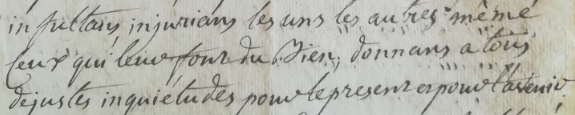 insultans injurians les uns les autres même
ceux qui leur font du Bien, donnans a tous
dejustes inquiétudes pour lepresent et pour l'avenir